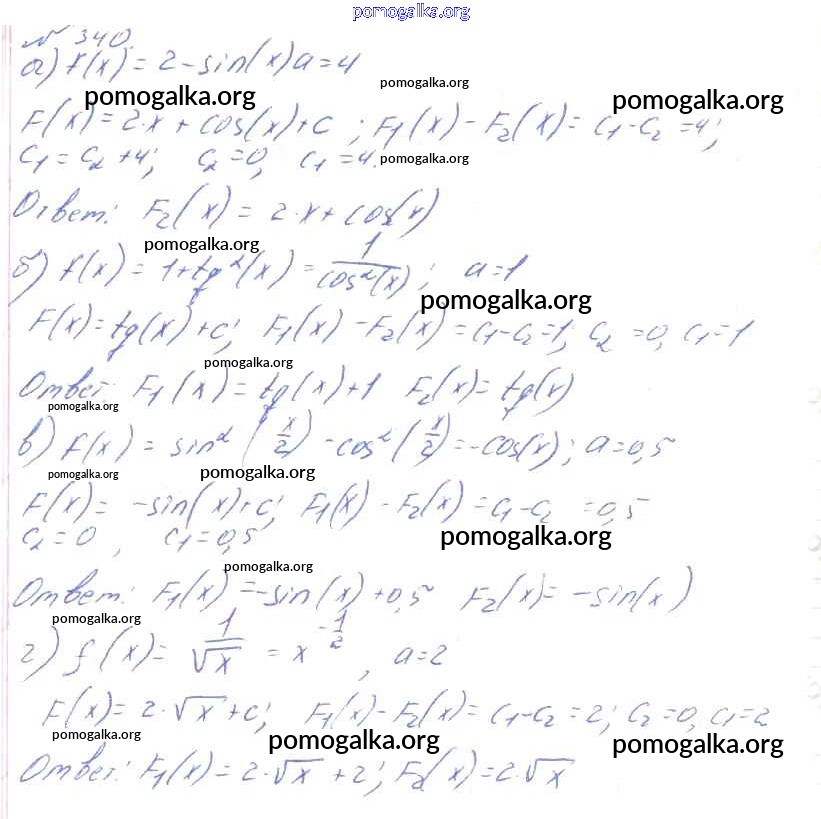 pomogalka.org
№ 340.
а) f(x) = 2 - sin(x) a = 4
pomogalka.org
pomogalka.org pomogalka.org
F(x) = 2·x + cos(x) + c ; F₁(x) - F₂(x) = c₁ - c₂ = 4;
c₁ = c₂ + 4; c₂ = 0, c₁ = 4.
pomogalka.org
Ответ: F₂(x) = 2·x + cos(x)
pomogalka.org
б) f(x) = 1 + tg²(x) = 1/cos²(x); a = 1
pomogalka.org
F(x) = tg(x) + c; F₁(x) - F₂(x) = c₁ - c₂ = 1; c₂ = 0, c₁ = 1
pomogalka.org
Ответ: F₁(x) = tg(x) + 1 F₂(x) = tg(x)
pomogalka.org
в) f(x) = sin²(x/2) - cos²(x/2) = -cos(x); a = 0,5
pomogalka.org pomogalka.org
F(x) = -sin(x) + c; F₁(x) - F₂(x) = c₁ - c₂ = 0,5
c₂ = 0, c₁ = 0,5
pomogalka.org
pomogalka.org
Ответ: F₁(x) = -sin(x) + 0,5 F₂(x) = -sin(x)
pomogalka.org
г) f(x) = 1/√x = x^(-1/2), a = 2
F(x) = 2·√x + c; F₁(x) - F₂(x) = c₁ - c₂ = 2; c₂ = 0, c₁ = 2
pomogalka.org pomogalka.org pomogalka.org
Ответ: F₁(x) = 2·√x + 2; F₂(x) = 2·√x